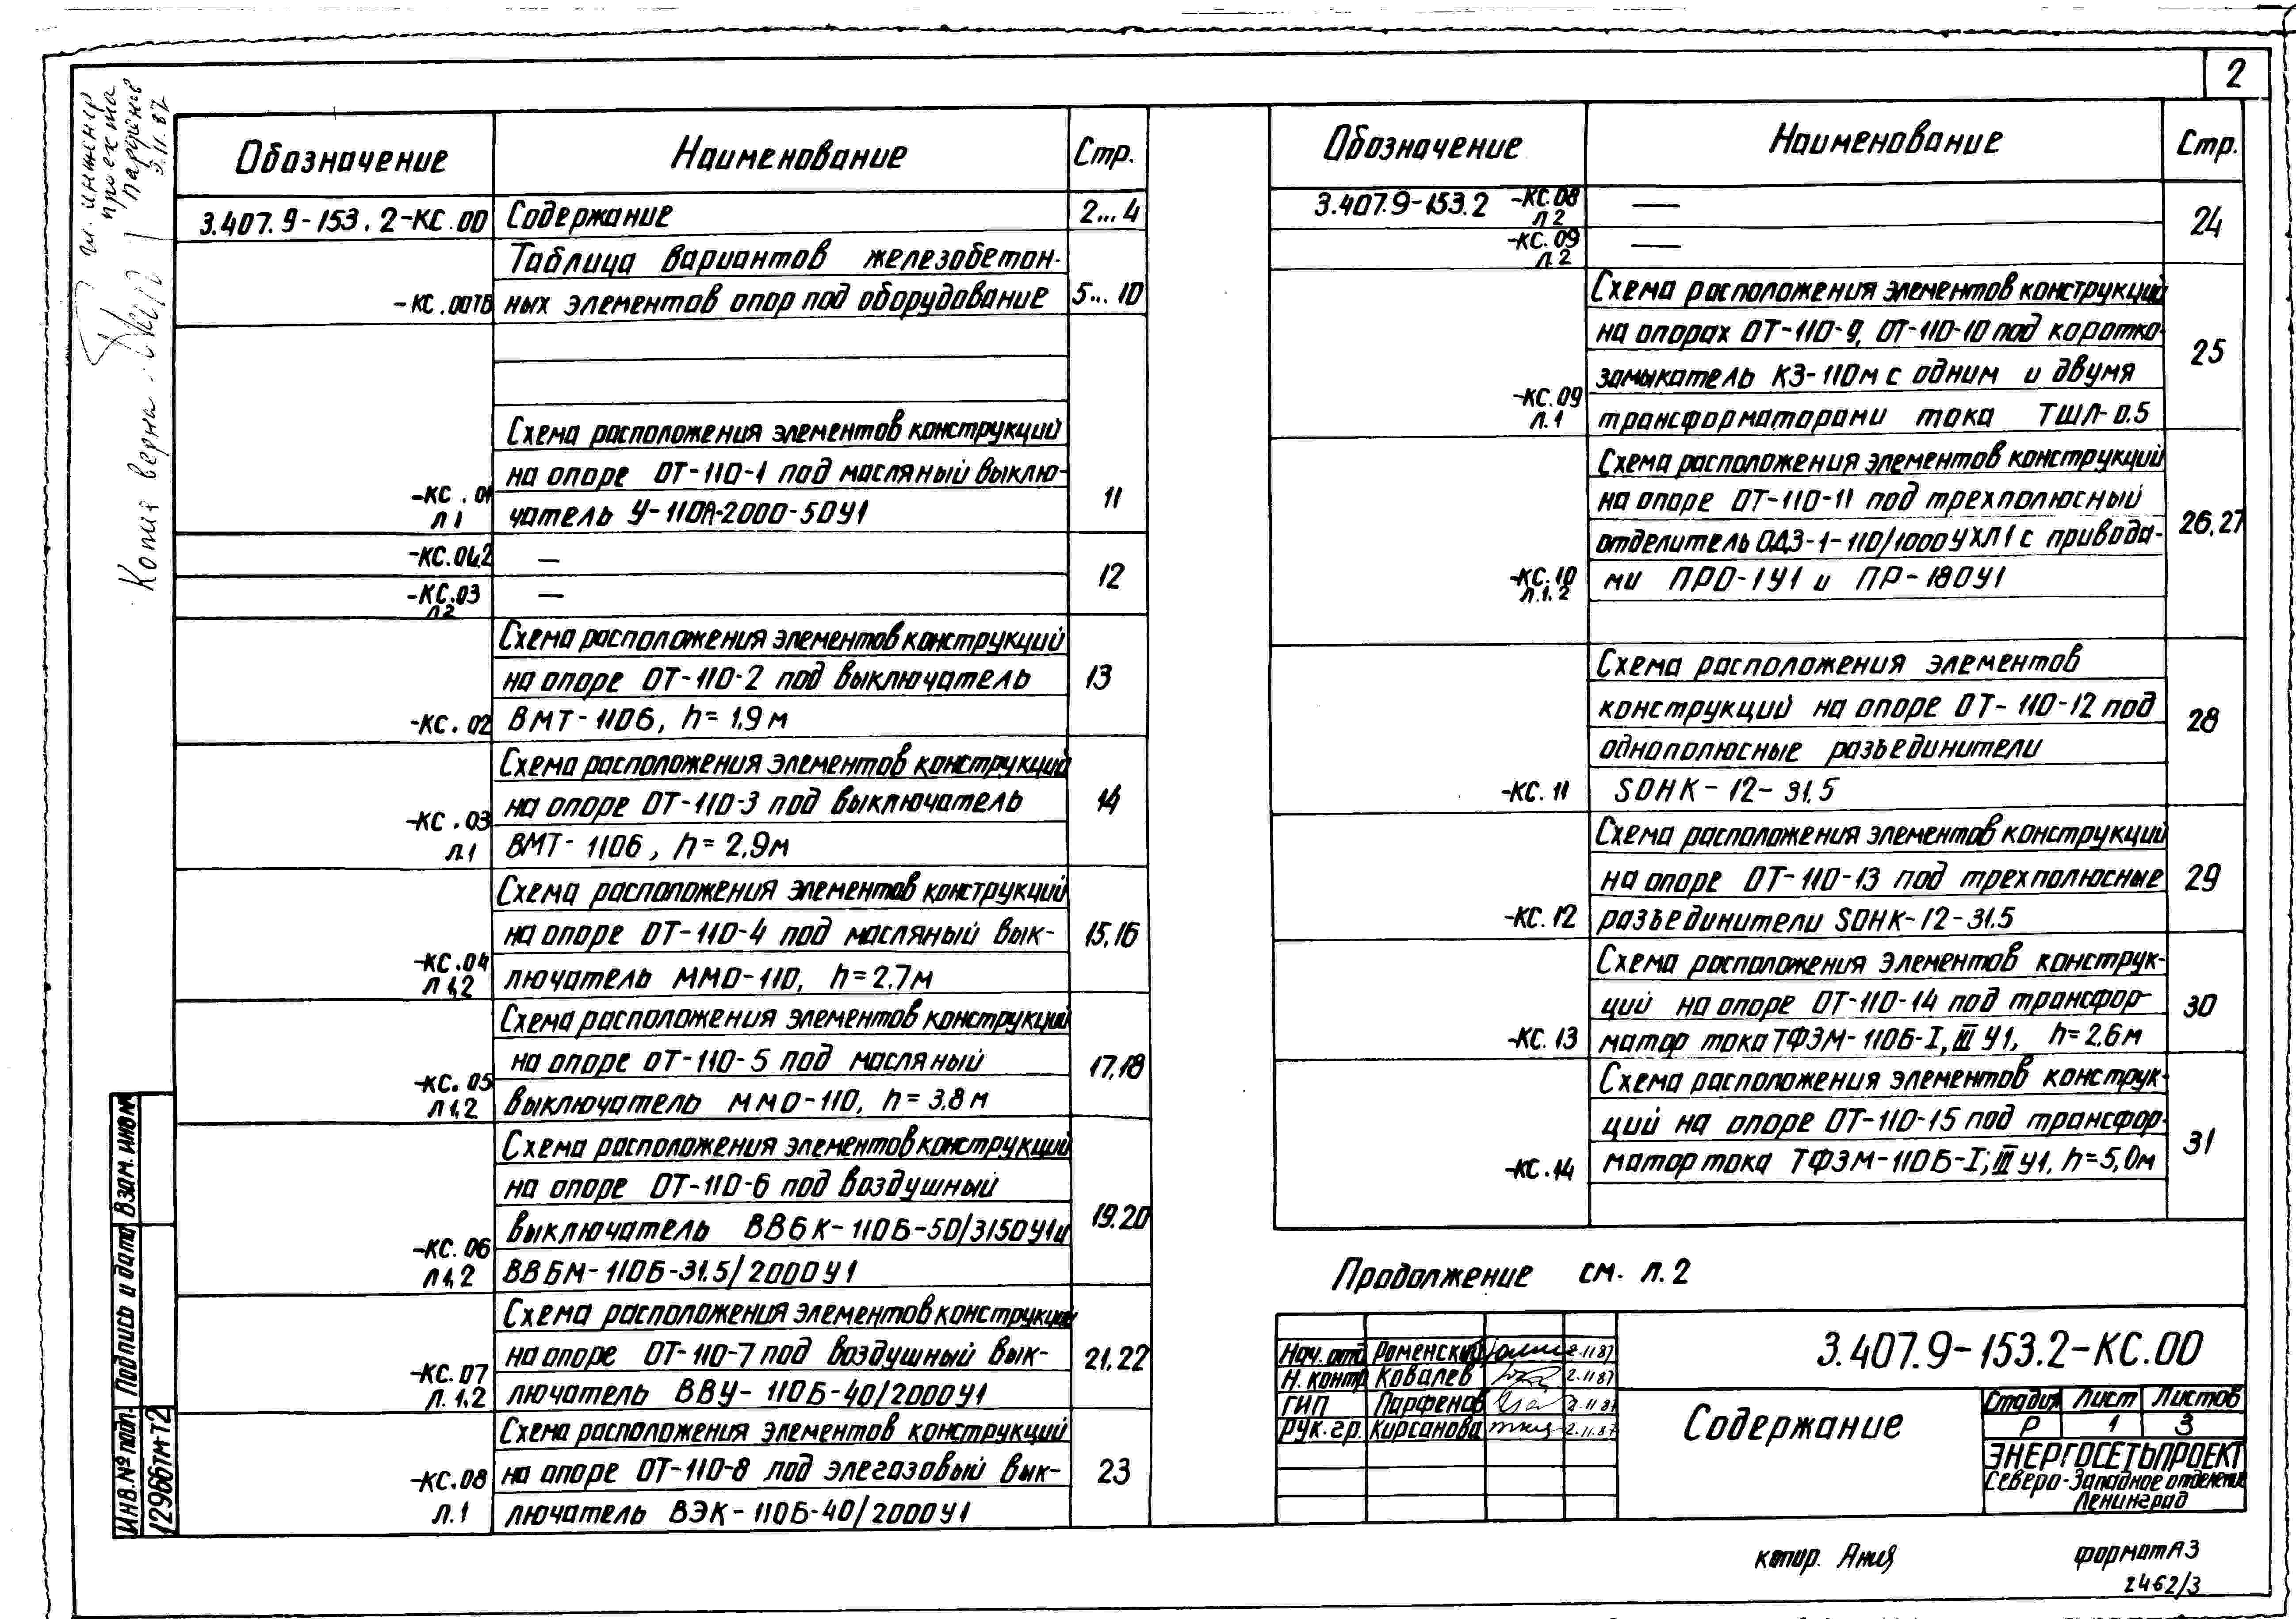 2
Гл. инженер
проекта
Парфенов
2.11.87
Копия верна
Обозначение Наименование Стр.
3.407.9-153.2-КС.00 Содержание 2...4
Таблица вариантов железобетон-
-КС.00ТБ ных элементов опор под оборудование 5...10
Схема расположения элементов конструкций
на опоре ОТ-110-1 под масляный выклю-
-КС.01 л 1 чатель У-110А-2000-50У1 11
-КС.01.2 —
12
-КС.03 л2 —
Схема расположения элементов конструкций
на опоре ОТ-110-2 под выключатель 13
-КС.02 ВМТ-110б, h=1,9м
Схема расположения элементов конструкций
на опоре ОТ-110-3 под выключатель 14
-КС.03 л.1 ВМТ-110б, h=2,9м
Схема расположения элементов конструкций
на опоре ОТ-110-4 под масляный вык- 15,16
-КС.04 л 1,2 лючатель ММО-110, h=2,7м
Схема расположения элементов конструкций
на опоре ОТ-110-5 под масляный 17,18
-КС.05 л 1,2 выключатель ММО-110, h=3,8м
Схема расположения элементов конструкций
на опоре ОТ-110-6 под воздушный
выключатель ВВБК-110Б-50/3150У1и 19.20
-КС.06 л 1,2 ВВБМ-110Б-31.5/2000У1
Схема расположения элементов конструкций
на опоре ОТ-110-7 под воздушный вык- 21,22
-КС.07 л.1,2 лючатель ВВУ-110Б-40/2000У1
Схема расположения элементов конструкций
-КС.08 на опоре ОТ-110-8 под элегазовый вык- 23
л.1 лючатель ВЭК-110Б-40/2000У1
Обозначение Наименование Стр.
3.407.9-153.2 -КС.08 л2 —
24
-КС.09 л.2 —
Схема расположения элементов конструкций
на опорах ОТ-110-9, ОТ-110-10 под коротко-
25
замыкатель КЗ-110м с одним и двумя
-КС.09 л.1 трансформаторами тока ТШЛ-0.5
Схема расположения элементов конструкций
на опоре ОТ-110-11 под трехполюсный
отделитель ОДЗ-1-110/1000УХЛ1 с привода- 26,27
-КС.10 л.1.2 ми ПРО-1У1 и ПР-180У1
Схема расположения элементов
конструкций на опоре ОТ-110-12 под
28
однополюсные разъединители
-КС.11 SОНК-12-31.5
Схема расположения элементов конструкций
на опоре ОТ-110-13 под трехполюсные 29
-КС.12 разъединители SОНК-12-31.5
Схема расположения элементов конструк-
ций на опоре ОТ-110-14 под трансфор- 30
-КС.13 матор тока ТФЗМ-110Б-I, III У1, h=2,6м
Схема расположения элементов конструк-
ций на опоре ОТ-110-15 под трансфор- 31
-КС.14 матор тока ТФЗМ-110Б-I; III У1, h=5,0м
Продолжение см. л.2
3.407.9-153.2-КС.00
Нач. отд Роменский 2.11 87
Н. контр Ковалев 2.11 87
ГИП Парфенов 2.11 87
Рук. гр. Кирсанова 2.11.87
Содержание
Стадия Лист Листов
Р 1 3
ЭНЕРГОСЕТЬПРОЕКТ
Северо-Западное отделение
Ленинград
Инв.№ подл. Подпись и дата Взам.инв№
12966тм-т2
копир. Анця формат А3
2462/3